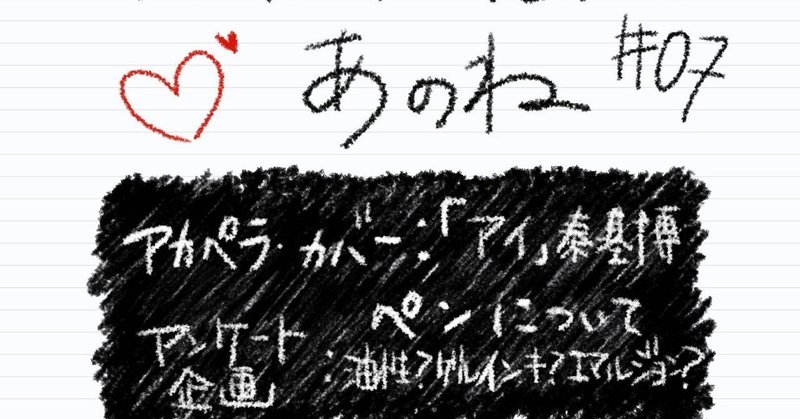 あのね #07
アカペラ・カバー:「アイ」秦基博
ペンについて
アンケート企画:油性?ゲルインキ?エマルジョン?